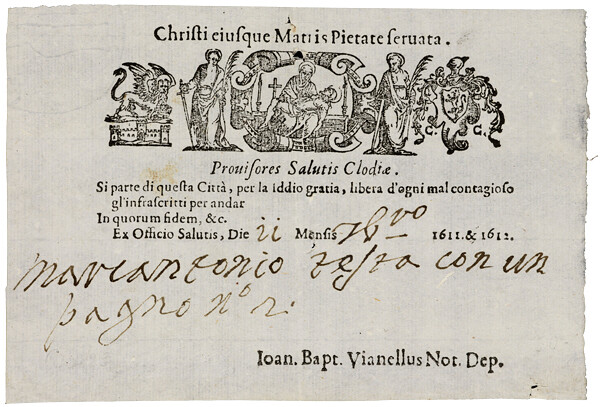 Christi eiusque Matris Pietate seruata.
C. G.
Prouisores Salutis Clodiæ.
Si parte di questa Città, per la Iddio gratia, libera d'ogni mal contagioso
gl'infrascritti per andar
In quorum fidem, &c.
Ex Officio Salutis, Die ii Mensis 1611. & 1612.
Marcantonio testa con un
pagno nº 2.
Ioan. Bapt. Vianellus Not. Dep.